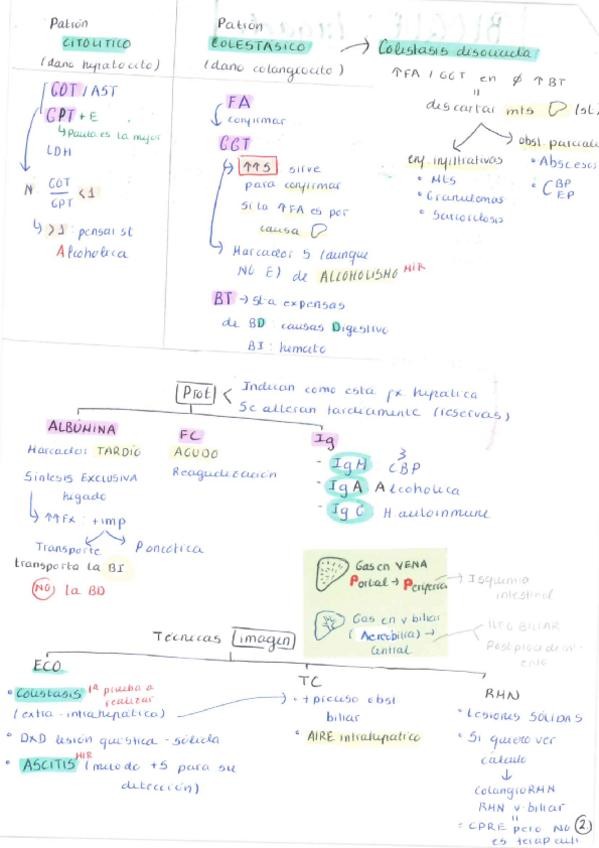 Patrón
CITOLITICO
(daño hepatocito)
GOT / AST
GPT + E
↳ Pauta es la mejor
LDH
N GOT / GPT < 1
↳ >1: pensar st
Alcoholica
Patrón
COLESTASICO
(daño colangiocito)
FA
↓ confirmar
GGT
↑↑S sirve
para confirmar
si la ↑FA es por
causa
Marcador S (aunque
NO E) de ALCOHOLISMO MIR
BT → st a expensas
de BD: causas Digestivo
BI: hemato
→ Colestasis disociada
↑FA / GGT en ∅ ↑BT
=
descartar mts
enf. infiltrativas
• Mts
• Granulomas
• Sarcoidosis
obst. parciales
• Abscesos
• CBP
CEP
Prot < Indican como esta fx hepática
Se alteran tardiamente (reservas)
ALBÚMINA
Marcador TARDIO
Síntesis EXCLUSIVA
hígado
↳ ↑↑Fx: + imp
Transporte
Poncótica
transporta la BI
NO la BD
FC
AGUDO
Reagudización
Ig
- IgM CBP
- IgA Alcoholica
- IgG H autoinmune
Gas en VENA
Portal → Periferia → Isquemia
intestinal
Gas en v biliar
(Aerobilia) →
Central
ILEO BILIAR
Técnicas imagen
ECO
• Colestasis 1ª prueba a
realizar
(extra-intrahepática)
• DXD lesión quística - sólida
• ASCITIS MIR (método +S para su
detección)
TC
• + preciso obst
biliar
• AIRE intrahepatico
RMN
• Lesiones SÓLIDAS
• Si quiero ver
cálculo
↓
ColangioRMN
RMN v. biliar
=
= CPRE pero NO
es terapeuti
2